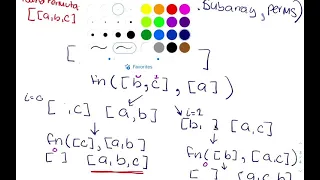 [[a,b,c]
Subarray, perms)
[ ]
Favorites
fn([b,c], [a])
i=0 [ ,c] [a,b] i=2 [b, ] [a,c]
fn([c],[a,b] fn([b],[a,c])
[ ] [a,b,c] [ ] [a,c,b]